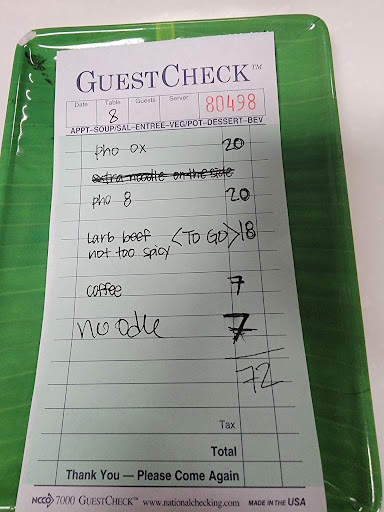 GUESTCHECK™
Date Table Guests Server
8 80498
APPT-SOUP/SAL-ENTREE-VEG/POT-DESSERT-BEV
pho ox 20
extra noodle on the side
pho 8 20
larb beef <TO GO> 18
not too spicy
coffee 7
noodle 7
72
Tax
Total
Thank You — Please Come Again
NCCO 7000 GUESTCHECK™ www.nationalchecking.com MADE IN THE USA